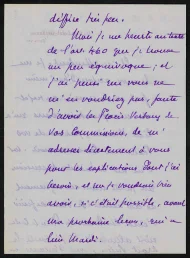 diffère très peu.
Mais je me heurte au texte
de l'art. 460 que je trouve
un peu équivoque ; et
j'ai pensé que vous ne
m'en voudriez pas, faute
d'avoir les Procès Verbaux de
vos Commissions, de m'
adresser directement à vous
pour les explications dont j'ai
besoin, et que je voudrais très
avoir, si c'était possible, avant
ma prochaine leçon, qui a
lieu Mardi.